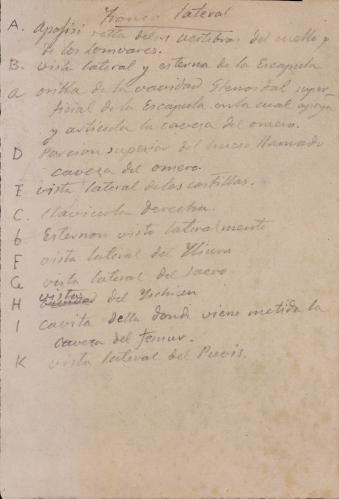 Tronco lateral
A. Apofisi retta delas vertebras del cuello y
de los Lomvares.
B. vista lateral y esterna de la Escapula
a orilla de la cavidad Glenoidal super
ficial de la Escapula en la cual apoya
y articula la caveza del omero.
D Porcion superior del hueso llamado
caveza del omero.
E vista lateral de las costillas.
C. clavicula derecha.
b Esternon visto lateralmente
F vista lateral del Ylium
G vista lateral del sacro
H vista del Yschion
I cavita della donde viene metida la
caveza del femur.
K vista lateral del Puvis.